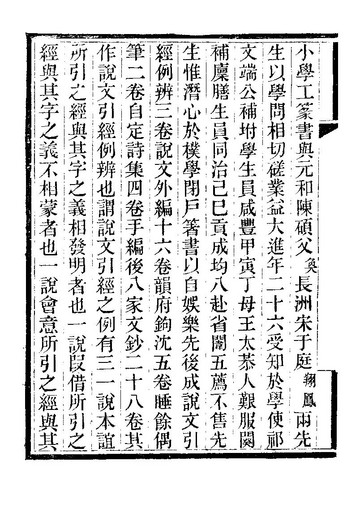 小學工篆書與元和陳碩父奐長洲宋于庭翔鳳兩先
生以學問相切磋業益大進年二十六受知於學使祁
文端公補坿學生員咸豐甲寅丁母王太恭人艱服闋
補廩膳生員同治己巳貢成均八赴省闈五薦不售先
生惟潛心於樸學閉戶箸書以自娛樂先後成說文引
經例辨三卷說文外編十六卷韻府鉤沈五卷睡餘偶
筆二卷自定詩集四卷手編後八家文鈔二十八卷其
作說文引經例辨也謂說文引經之例有三一說本誼
所引之經與其字之義相發明者也一說叚借所引之
經與其字之義不相蒙者也一說會意所引之經與其